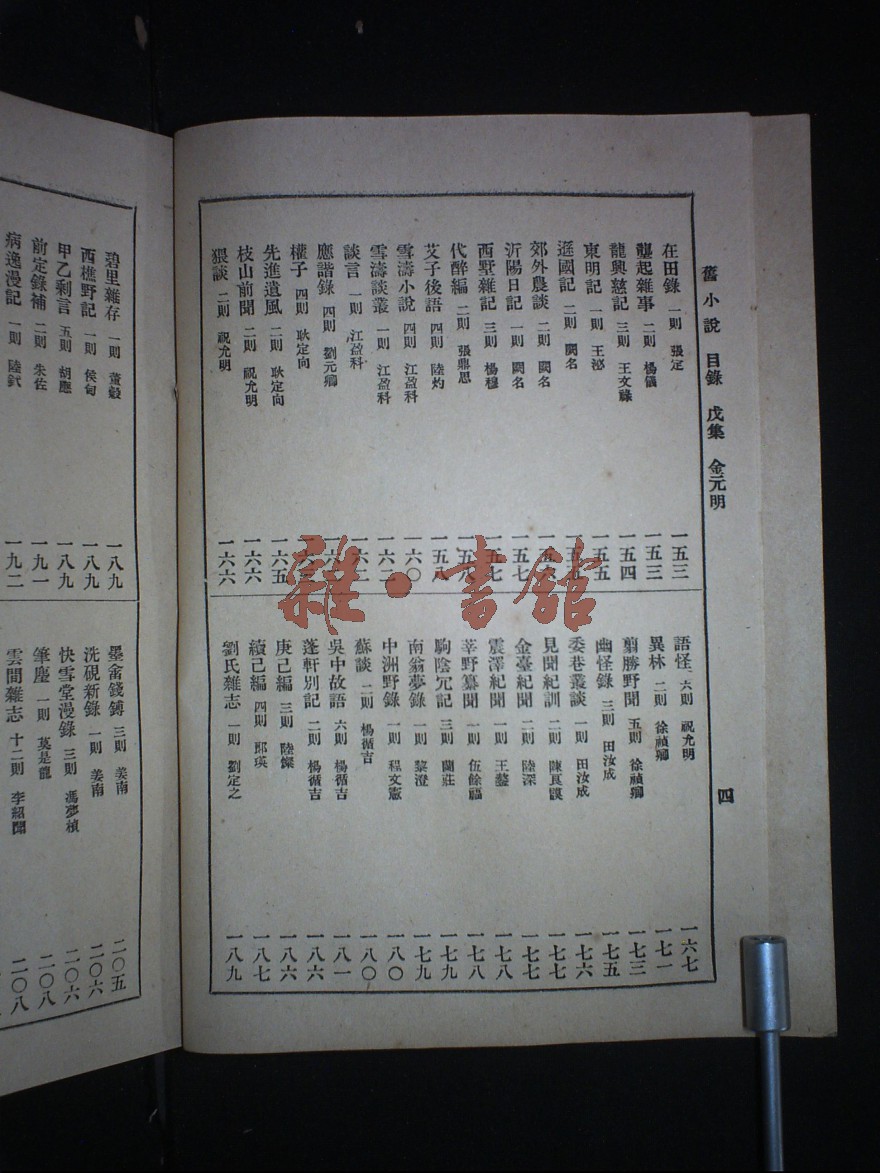 舊小說 目錄 戊集 金元明
四
在田錄 一則 張定 一五三
壟起雜事 二則 楊儀 一五三
龍興慈記 三則 王文祿 一五四
東明記 一則 王泌 一五五
遜國記 二則 闕名
郊外農談 二則 闕名
沂陽日記 一則 闕名 一五七
西墅雜記 三則 楊穆 一五七
代醉編 二則 張鼎思
艾子後語 四則 陸灼 一五八
雪濤小說 四則 江盈科 一六〇
雪濤談叢 一則 江盈科
談言 一則 江盈科
應諧錄 四則 劉元卿
權子 四則 耿定向
先進遺風 二則 耿定向 一六五
枝山前聞 二則 祝允明 一六六
猥談 二則 祝允明 一六六
語怪 六則 祝允明 一六七
異林 二則 徐禎卿 一七一
翦勝野聞 五則 徐禎卿 一七三
幽怪錄 三則 田汝成 一七五
委巷叢談 一則 田汝成 一七六
見聞紀訓 二則 陳良謨 一七七
金臺紀聞 二則 陸深 一七七
震澤紀聞 一則 王鏊 一七八
莘野纂聞 一則 伍餘福 一七八
駒陰冗記 三則 闌莊 一七九
南翁夢錄 一則 黎澄 一七九
中洲野錄 一則 程文憲 一八〇
蘇談 二則 楊循吉 一八〇
吳中故語 六則 楊循吉 一八一
蓬軒別記 二則 楊循吉 一八六
庚己編 三則 陸燦 一八六
續己編 四則 郎瑛 一八七
劉氏雜志 一則 劉定之 一八九
碧里雜存 一則 董穀 一八九
西樵野記 一則 侯甸 一八九
甲乙剩言 五則 胡應 一八九
前定錄補 二則 朱佐 一九一
病逸漫記 一則 陸釴 一九二
墨畬錢鎛 三則 姜南 二〇五
洗硯新錄 一則 姜南 二〇六
快雪堂漫錄 三則 馮夢禎 二〇六
筆麈 一則 莫是龍 二〇八
雲間雜志 十二則 李紹聞 二〇八
雜·書館